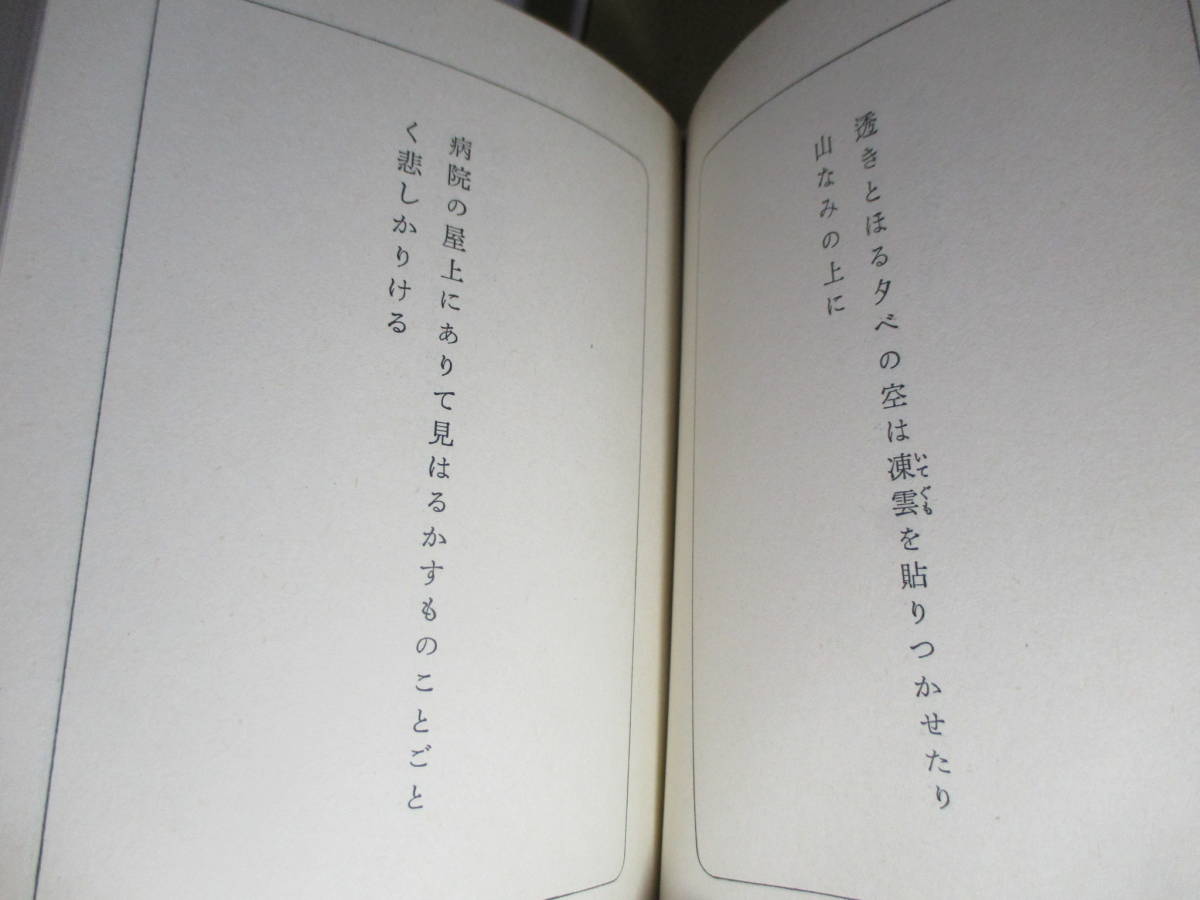 透きとほる夕べの空は凍雲を貼りつかせたり
いてぐも
山なみの上に
病院の屋上にありて見はるかすものことごと
く悲しかりける